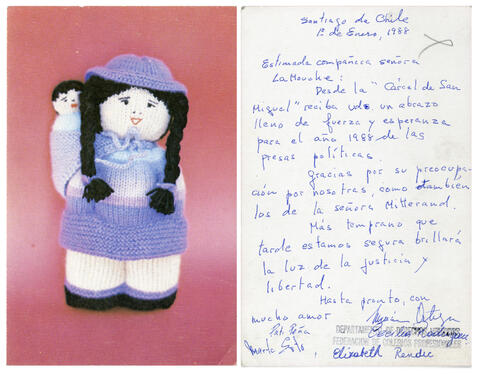 Santiago de Chile
1º de Enero, 1988
Estimada compañera señora
La Mouche:
Desde la "Cárcel de San
Miguel" reciba uds. un abrazo
lleno de fuerza y esperanza
para el año 1988 de las
presas políticas.
Gracias por su preocupa-
ción por nosotras, como también
los de la señora Mitterand.
Más temprano que
tarde estamos segura brillará
la luz de la justicia y
libertad.
Hasta pronto, con
mucho amor
Pati Peña
DEPARTAMENTO DE
FEDERACION DE COLEGIOS PROFESIONALES
Elizabeth Rendic